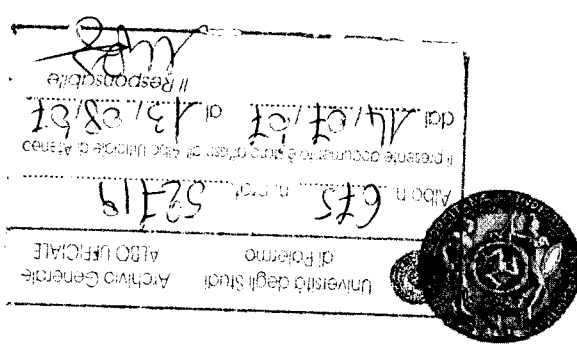 Università degli Studi di Palermo
Archivio Generale
ALBO UFFICIALE
Albo n. 675 n. prot. 52719
Il presente documento è stato affisso all'Albo Ufficiale di Ateneo
dal 14/07/07 al 13/08/07
Il Responsabile